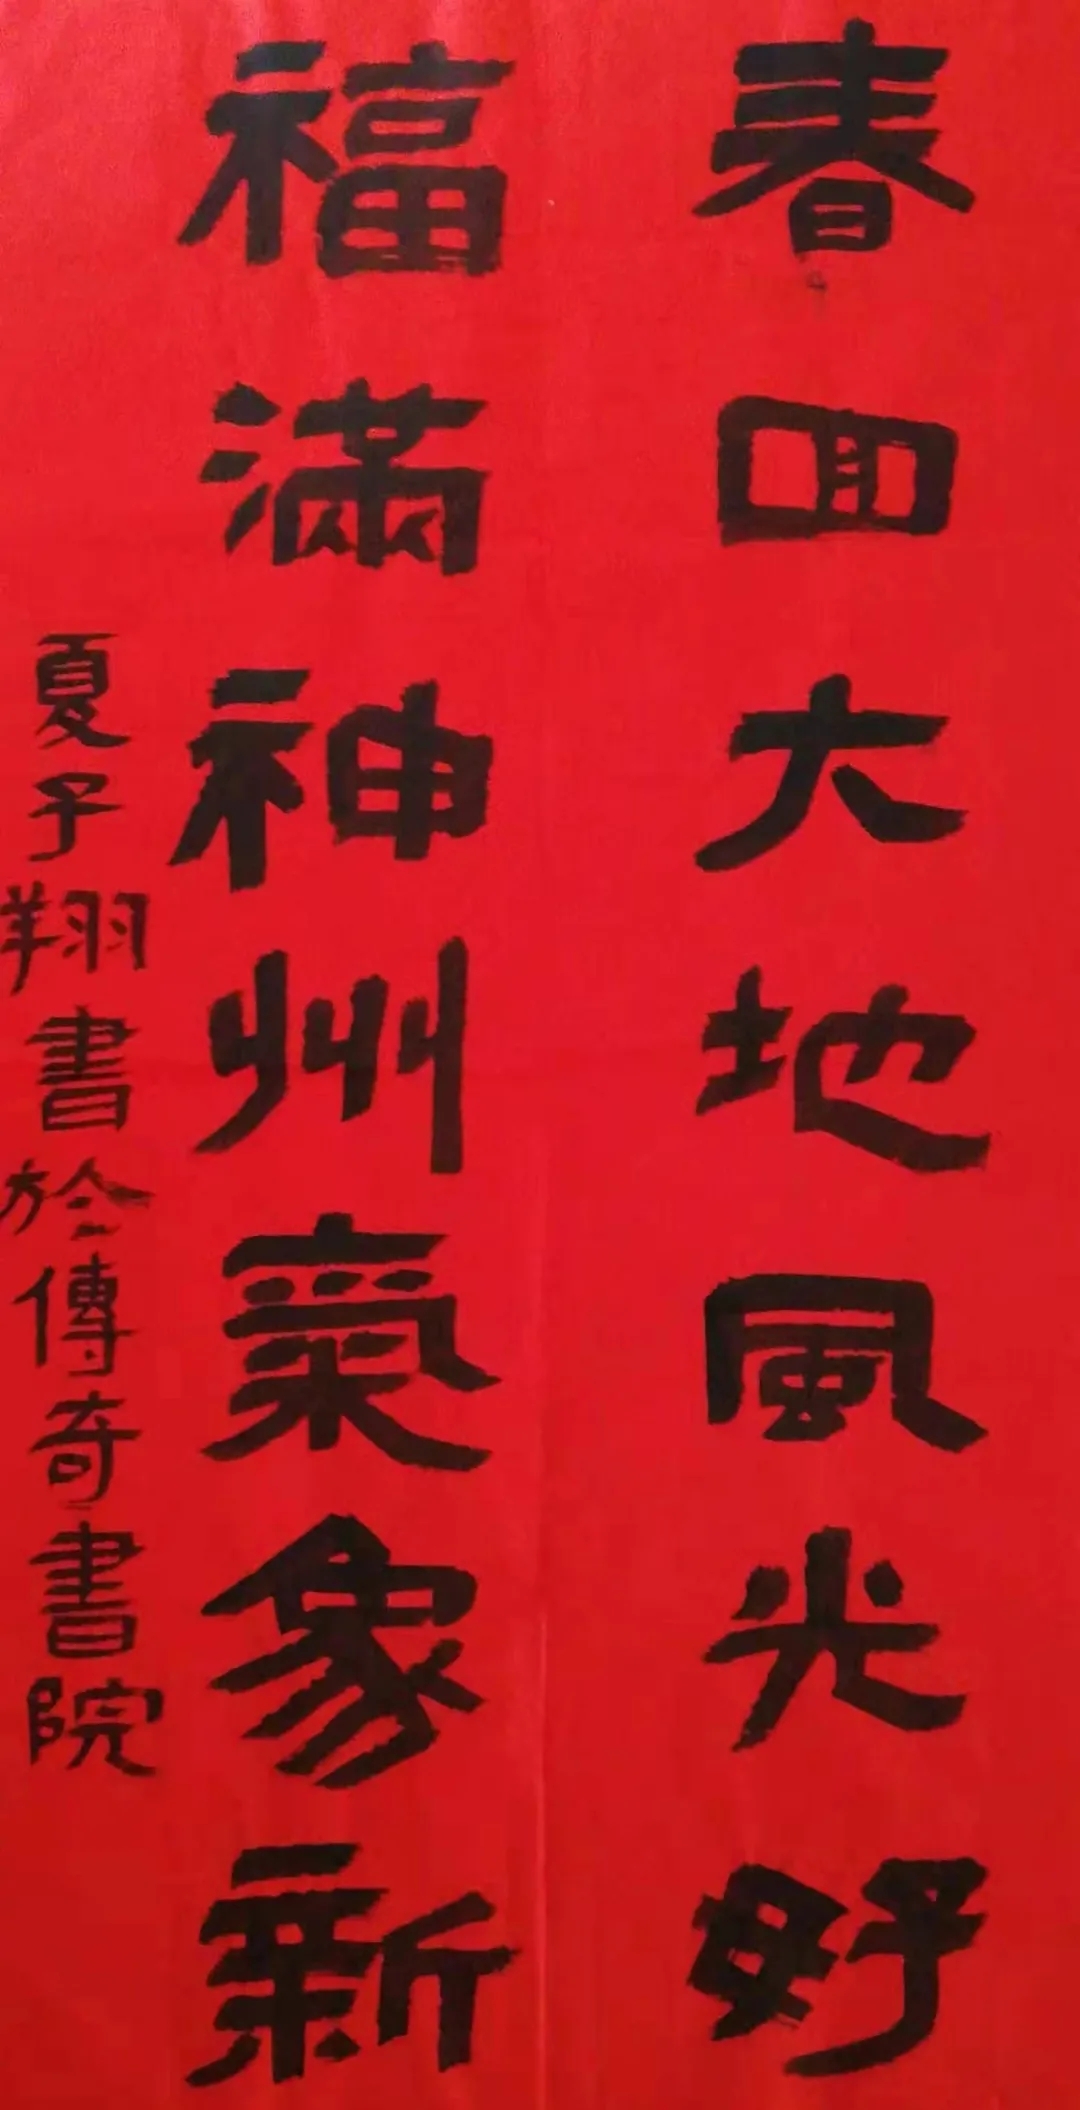 春回大地風光好
福滿神州氣象新
夏子翔書於傳奇書院